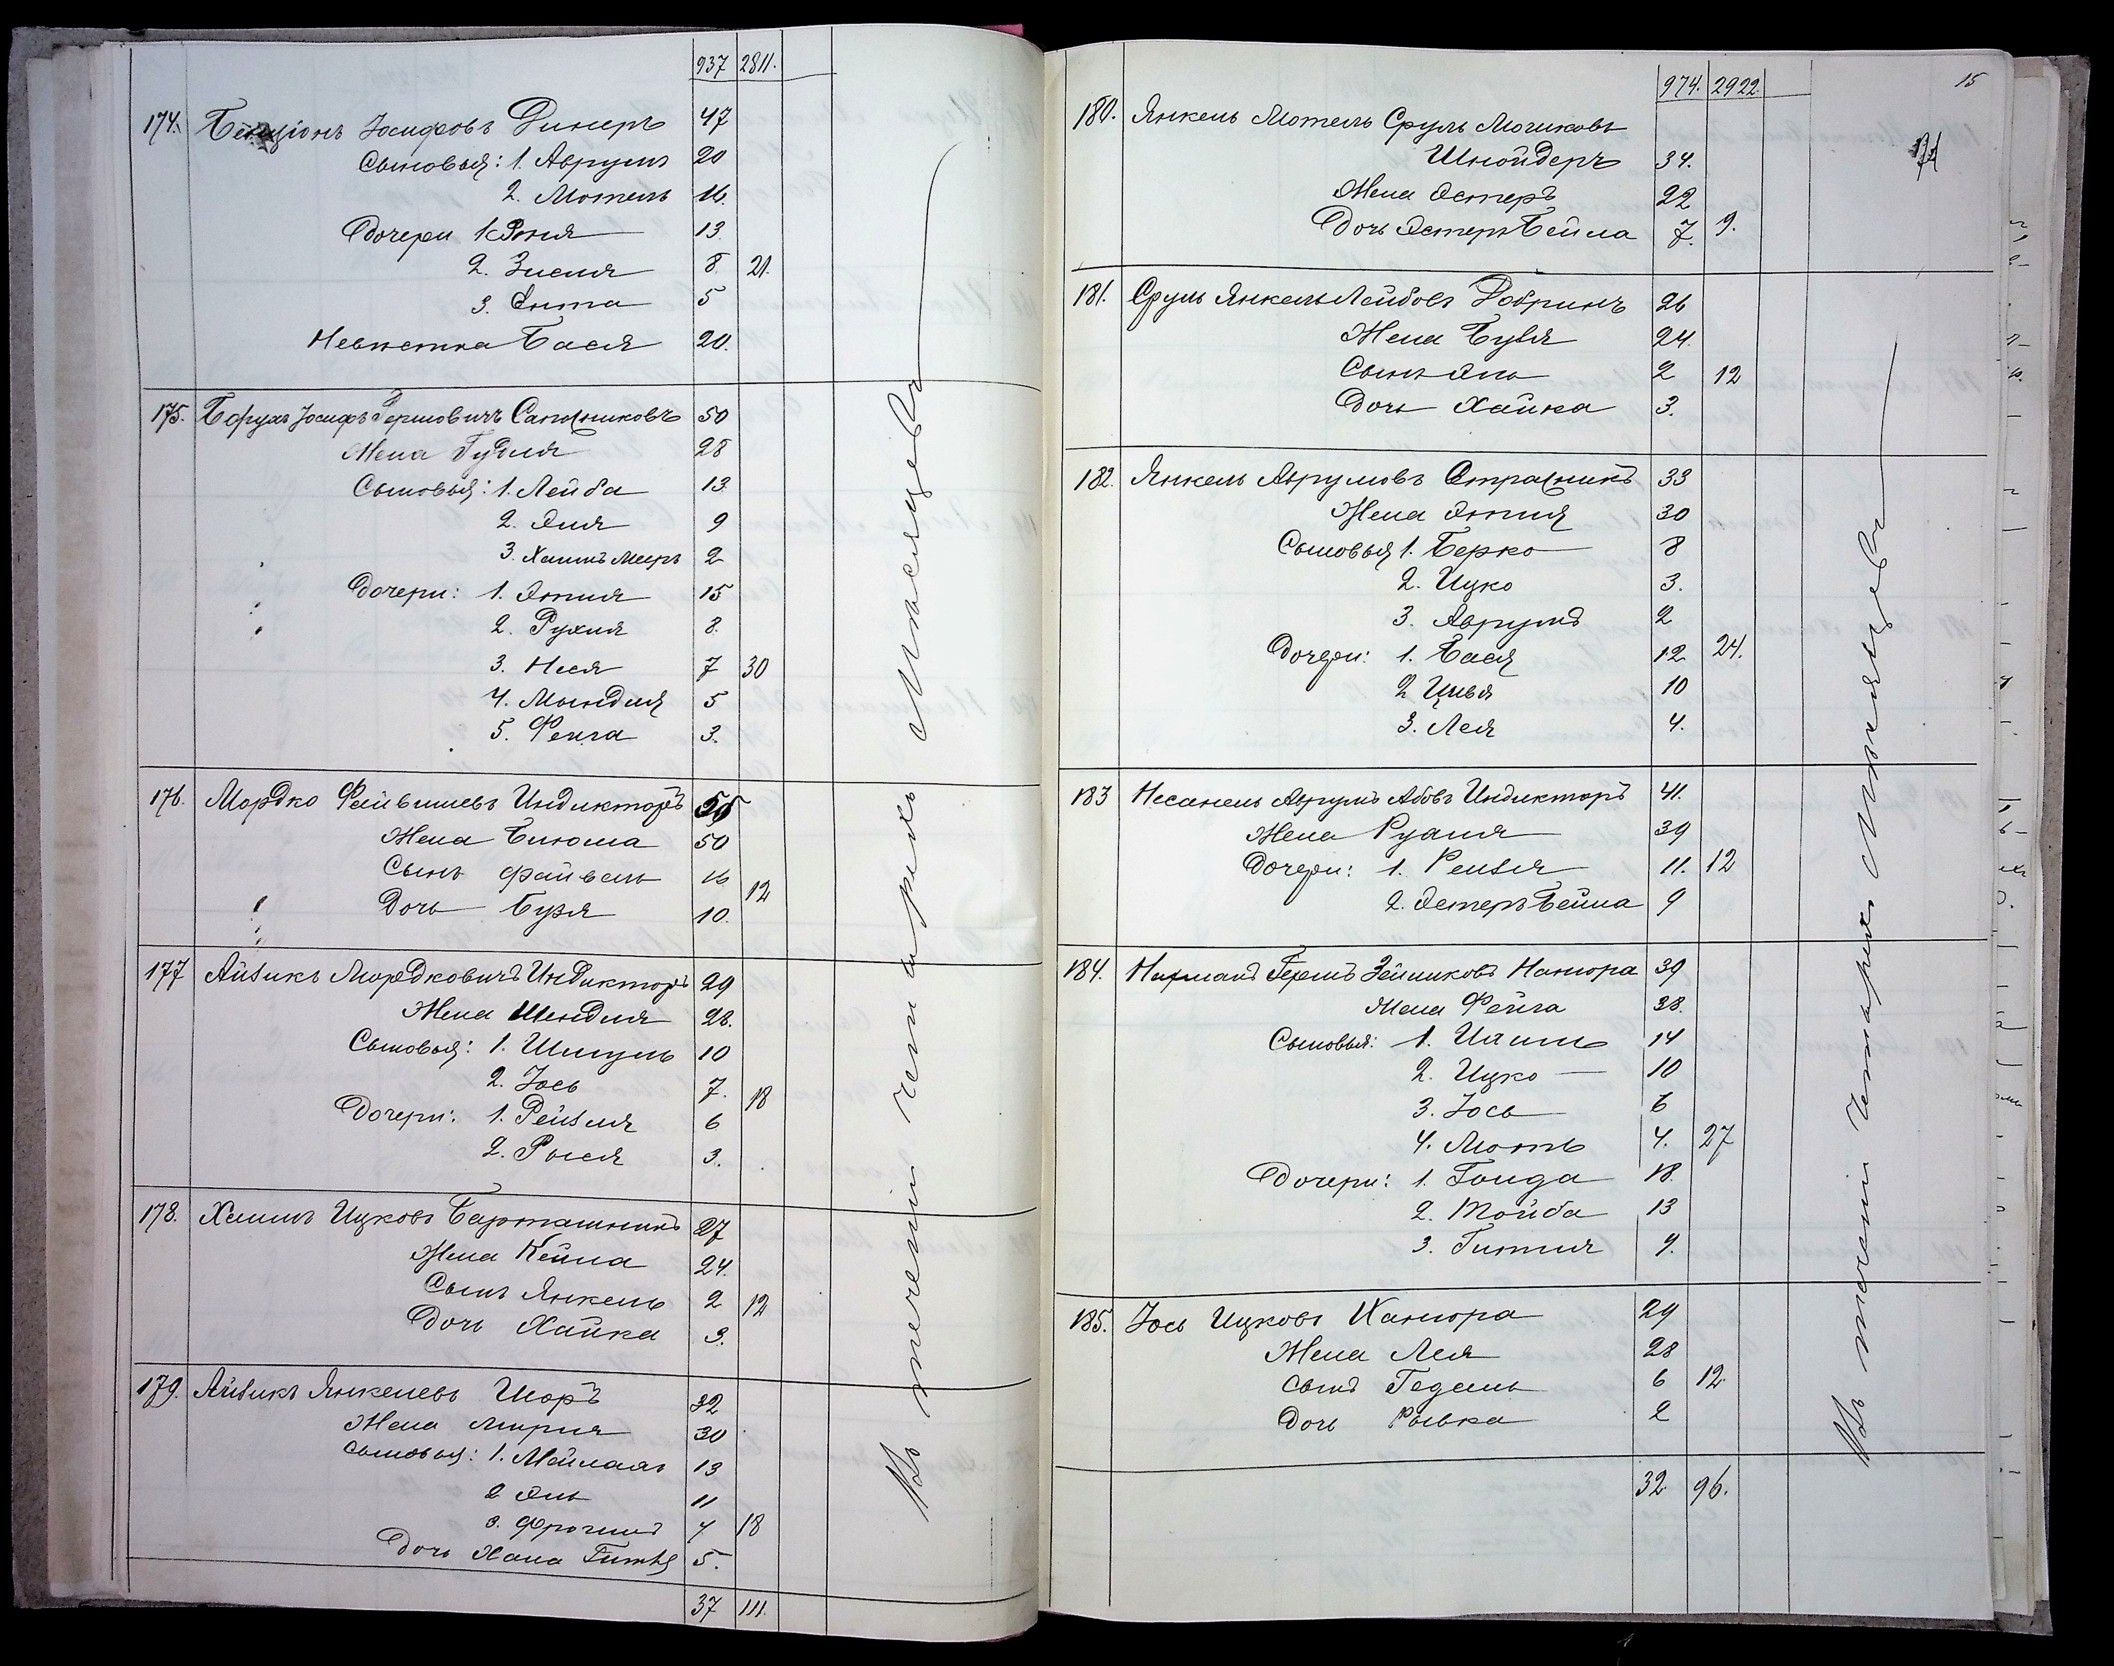 937 2811.
174. Бенціонъ Іосифовъ Динеръ 47
Сыновья: 1. Аврумъ 20
2. Мотель 16.
Дочери 1. Роня 13
2. Зисля 8. 21.
3. Ента 5
Невистка Бася 20.
175. Борухъ Іосифъ Гершовичъ Сапожниковъ 50
Жена Гудля 28
Сыновья: 1. Лейба 13
2. Эля 9
3. Хаимъ Мееръ 2
Дочери: 1. Этля 15
2. Рухля 8.
3. Нися 7 30
4. Мындля 5
5. Фейга 3.
176. Мордко Файвишевъ Индикторъ 55
Жена Блюма 50
Сынъ Файвель 16 12
Дочь Бузя 10.
177 Айзикъ Мордковичъ Индикторъ 29
Жена Шендля 28.
Сыновья: 1. Шмуль 10
2. Іось 7. 18
Дочери: 1. Рейзля 6
2. Рыся 3.
178. Хаимъ Ицковъ Барташникъ 27
Жена Кейла 24.
Сынъ Янкель 2 12
Дочь Хайка 3.
179. Айзикъ Янкелевъ Шоръ 32
Жена Мирля 30
Сыновья: 1. Мейлахъ 13
2 Эль 11
3. Фроимъ 7 18
Дочь Хана Гитля 5.
37 111.
Въ теченіи четырехъ Мѣсяцевъ
974. 2922. 15
180. Янкель Мотель Сруль Мошковъ
Шнойдеръ 34.
Жена Эстеръ 22
Дочь Эстеръ Бейла 7. 9.
181. Сруль Янкель Лейбовъ Добринъ 26
Жена Бузя 24.
Сынъ Эль 2 12
Дочь Хайка 3.
182. Янкель Аврумовъ Стражникъ 33
Жена Этля 30
Сыновья 1. Берко 8
2. Ицко 3.
3. Аврумъ 2
Дочери: 1. Бася 12 24.
2 Цивья 10
3. Лея 4.
183 Несанель Аврумъ Абовъ Индикторъ 41.
Жена Рухля 39
Дочери: 1. Рейзя 11. 12
2. Эстеръ Бейла 9
184. Нахманъ Гершъ Зейликовъ Канюра 39
Жена Фейга 38.
Сыновья: 1. 14
2. Ицко 10
3. Іось 6
4. Моть 4. 27
Дочери: 1. Голда 18.
2. Тойба 13
3. Гитля 9.
185. Іось Ицковъ Канюра 29
Жена Лея 28
Сынъ Гедаль 6 12.
Дочь Рывка 2
32. 96.
Въ теченіи четырехъ Мѣсяцевъ